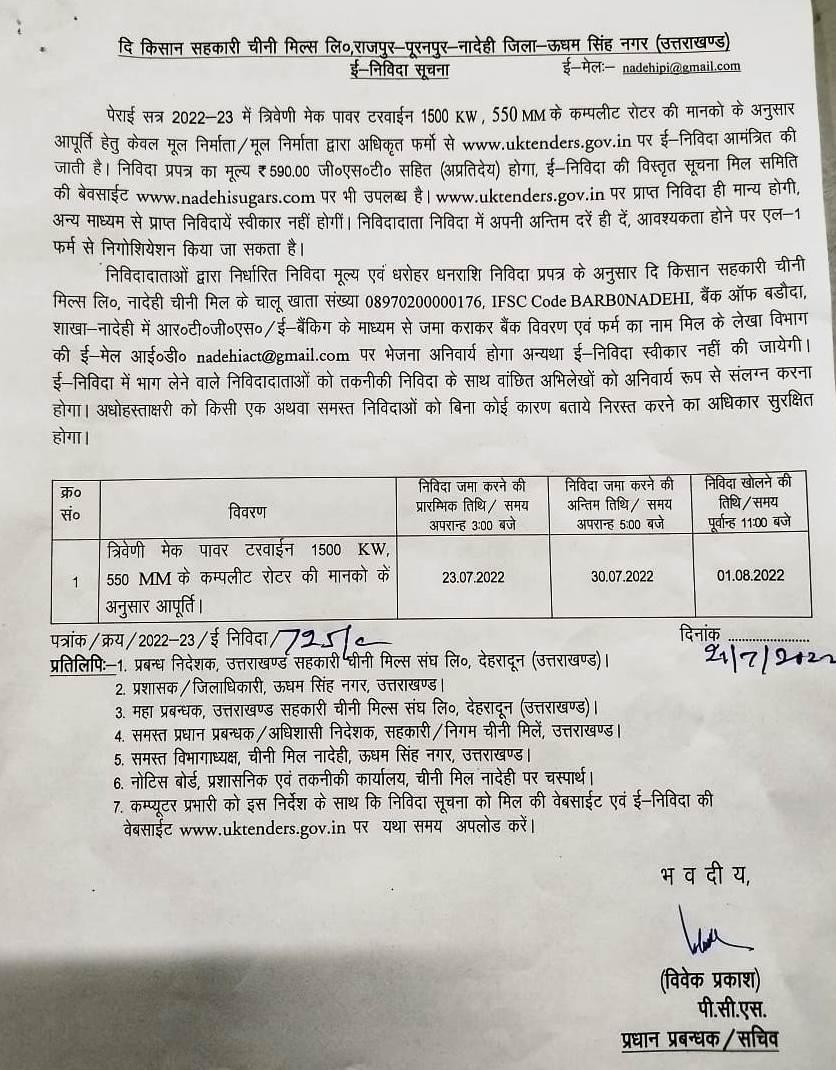 दि किसान सहकारी चीनी मिल्स लि०,राजपुर–पूरनपुर–नादेही जिला–ऊधम सिंह नगर (उत्तराखण्ड)
ई–निविदा सूचना ई–मेलः– nadehipi@gmail.com
पेराई सत्र 2022–23 में त्रिवेणी मेक पावर टरवाईन 1500 KW, 550 MM के कम्पलीट रोटर की मानको के अनुसार
आपूर्ति हेतु केवल मूल निर्माता/मूल निर्माता द्वारा अधिकृत फर्मो से www.uktenders.gov.in पर ई–निविदा आमंत्रित की
जाती है। निविदा प्रपत्र का मूल्य ₹ 590.00 जी०एस०टी० सहित (अप्रतिदेय) होगा, ई–निविदा की विस्तृत सूचना मिल समिति
की बेवसाईट www.nadehisugars.com पर भी उपलब्ध है। www.uktenders.gov.in पर प्राप्त निविदा ही मान्य होगी,
अन्य माध्यम से प्राप्त निविदायें स्वीकार नहीं होगीं। निविदादाता निविदा में अपनी अन्तिम दरें ही दें, आवश्यकता होने पर एल–1
फर्म से निगोशियेशन किया जा सकता है।
निविदादाताओं द्वारा निर्धारित निविदा मूल्य एवं धरोहर धनराशि निविदा प्रपत्र के अनुसार दि किसान सहकारी चीनी
मिल्स लि०, नादेही चीनी मिल के चालू खाता संख्या 08970200000176, IFSC Code BARB0NADEHI, बैंक ऑफ बडौदा,
शाखा–नादेही में आर०टी०जी०एस०/ई–बैंकिग के माध्यम से जमा कराकर बैंक विवरण एवं फर्म का नाम मिल के लेखा विभाग
की ई–मेल आई०डी० nadehiact@gmail.com पर भेजना अनिवार्य होगा अन्यथा ई–निविदा स्वीकार नहीं की जायेगी।
ई–निविदा में भाग लेने वाले निविदादाताओं को तकनीकी निविदा के साथ वांछित अभिलेखों को अनिवार्य रूप से संलग्न करना
होगा। अधोहस्ताक्षरी को किसी एक अथवा समस्त निविदाओं को बिना कोई कारण बताये निरस्त करने का अधिकार सुरक्षित
होगा।
क्र० सं० विवरण निविदा जमा करने की प्रारम्भिक तिथि/ समय अपरान्ह 3:00 बजे निविदा जमा करने की अन्तिम तिथि/ समय अपरान्ह 5:00 बजे निविदा खोलने की तिथि/समय पूर्वान्ह 11:00 बजे
1 त्रिवेणी मेक पावर टरवाईन 1500 KW, 550 MM के कम्पलीट रोटर की मानको कें अनुसार आपूर्ति। 23.07.2022 30.07.2022 01.08.2022
पत्रांक/क्रय/2022–23/ई निविदा/725/c दिनांक ........................
21/7/2022
प्रतिलिपिः–1. प्रबन्ध निदेशक, उत्तराखण्ड सहकारी चीनी मिल्स संघ लि०, देहरादून (उत्तराखण्ड)।
2. प्रशासक/जिलाधिकारी, ऊधम सिंह नगर, उत्तराखण्ड।
3. महा प्रबन्धक, उत्तराखण्ड सहकारी चीनी मिल्स संघ लि०, देहरादून (उत्तराखण्ड)।
4. समस्त प्रधान प्रबन्धक/अधिशासी निदेशक, सहकारी/निगम चीनी मिलें, उत्तराखण्ड।
5. समस्त विभागाध्यक्ष, चीनी मिल नादेही, ऊधम सिंह नगर, उत्तराखण्ड।
6. नोटिस बोर्ड, प्रशासनिक एवं तकनीकी कार्यालय, चीनी मिल नादेही पर चस्पार्थ।
7. कम्प्यूटर प्रभारी को इस निर्देश के साथ कि निविदा सूचना को मिल की वेबसाईट एवं ई–निविदा की
वेबसाईट www.uktenders.gov.in पर यथा समय अपलोड करें।
भ व दी य,
(विवेक प्रकाश)
पी.सी.एस.
प्रधान प्रबन्धक/सचिव